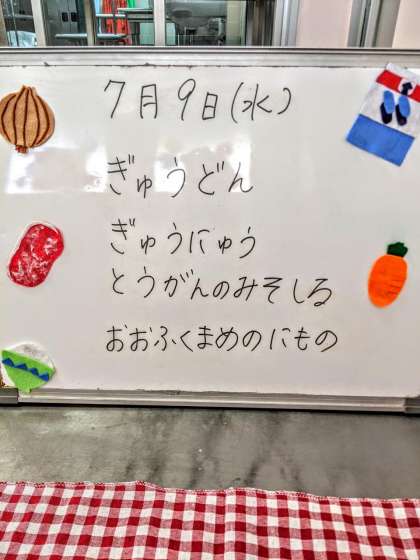 7月9日(水)
ぎゅうどん
ぎゅうにゅう
とうがんのみそしる
おおふくまめのにもの